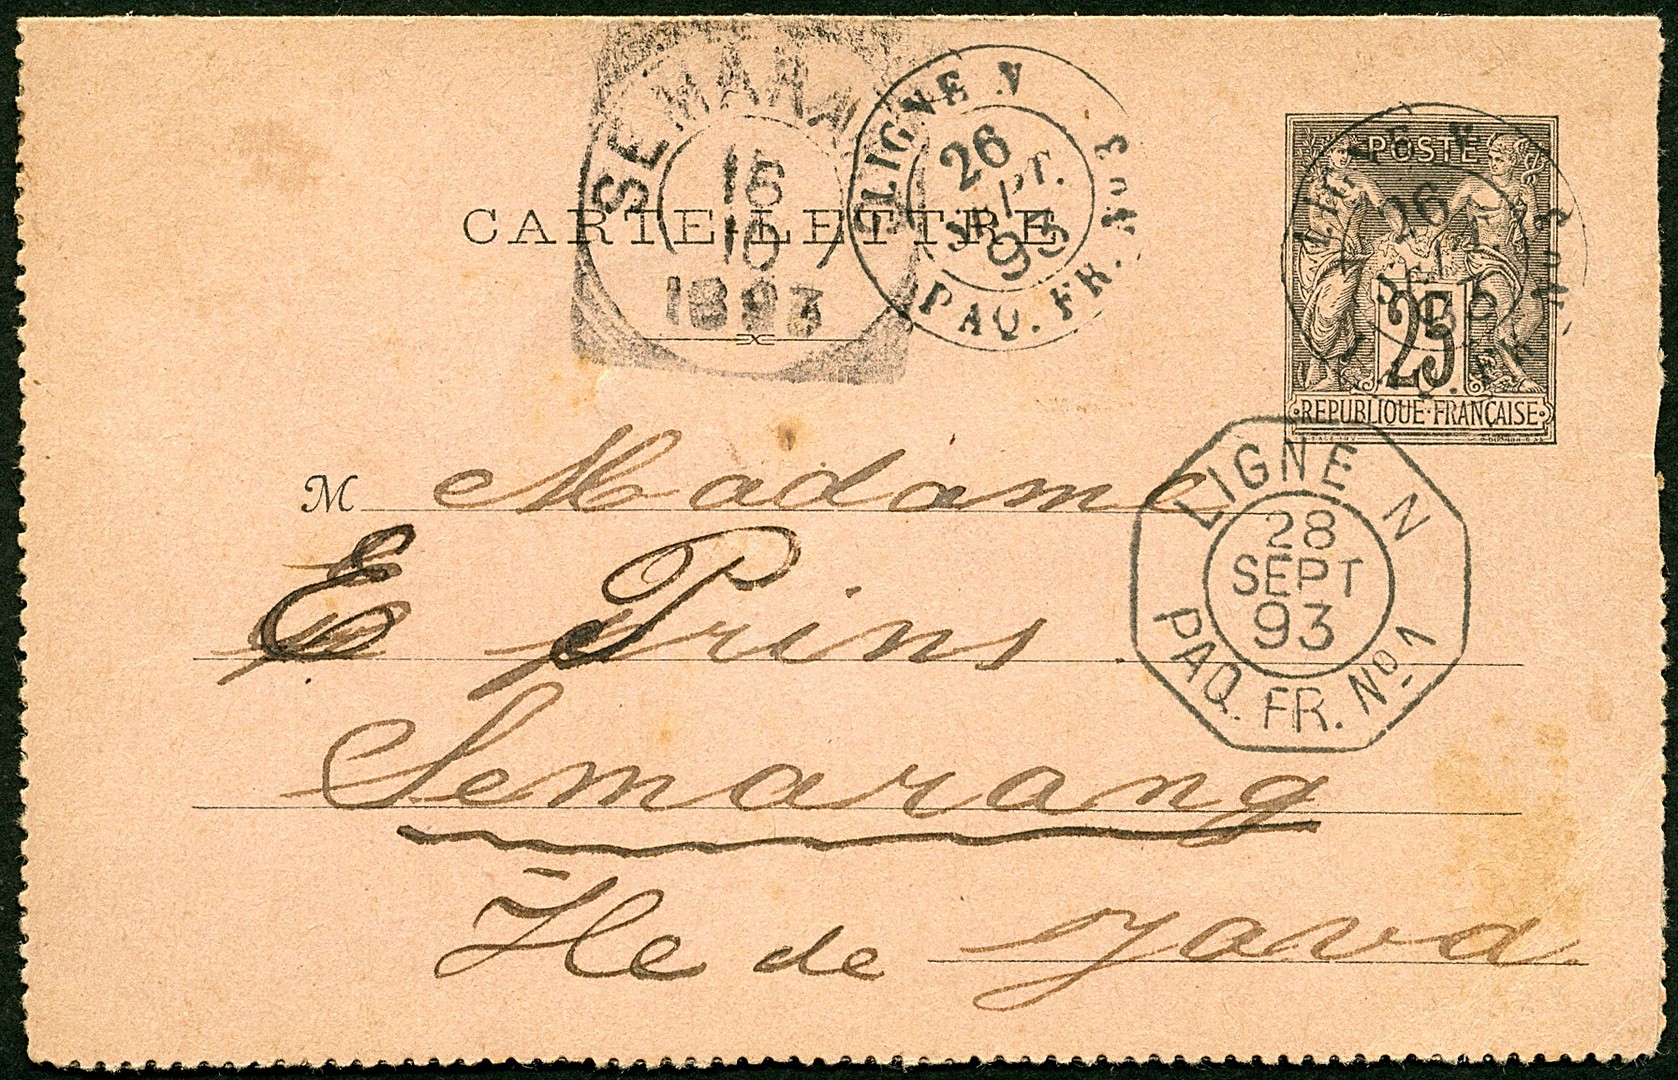 SEMARA
15
10
1893
LIGNE N
26
SEPT.
93
PAQ. FR. No 3
CARTE-LETTRE
POSTE
25
REPUBLIQUE FRANÇAISE
LIGNE N
26
SEPT.
93
No 3
LIGNE N
28
SEPT
93
PAQ. FR. No 1
M Madame
E Prins
Semarang
Île de Java